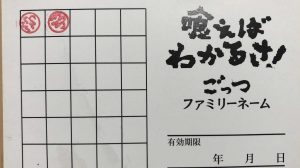 喰えば
わかるさ!
ごっつ
ファミリーネーム
有効期限
年 月 日